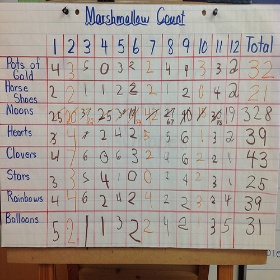 Marshmallow Count
1 2 3 4 5 6 7 8 9 10 11 12 Total
Pots of Gold 4 3 5 0 3 2 2 4 9 3 3 2 32
Horse Shoes 2 2 1 1 2 2 2 1 2 0 4 2 21
Moons 25 19 328
Hearts 3 4 2 4 2 5 5 6 1 3 2 39
Clovers 4 7 6 6 6 3 2 4 6 2 2 1 43
Stars 3 3 5 4 1 0 0 5 4 2 3 1 25
Rainbows 4 4 6 2 4 2 4 2 2 3 2 4 39
Balloons 5 2 1 1 3 2 2 4 2 3 5 31